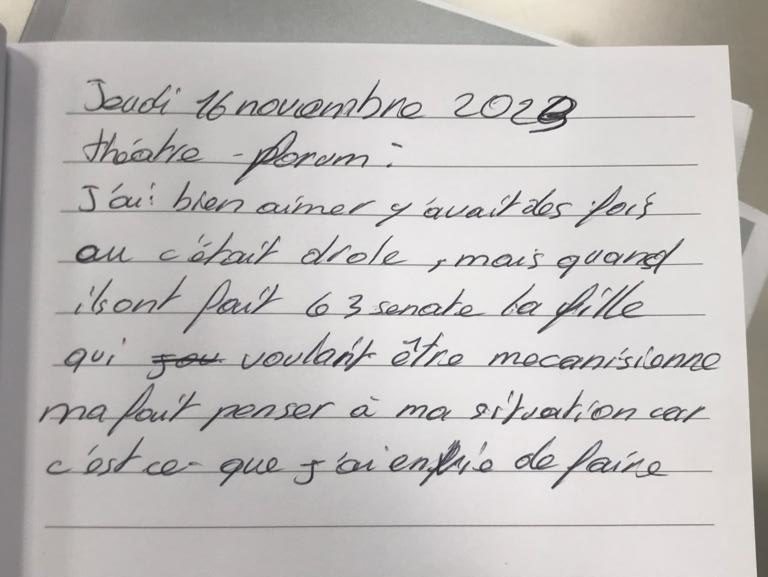 Jeudi 16 novembre 2023
théatre - forum :
J'ai bien aimer y'avait des fois
au c'était drole, mais quand
ilsont fait la 3 senate la fille
qui voulant être mecanisionne
ma fait penser à ma situation car
c'est ce- que j'ai envie de faire